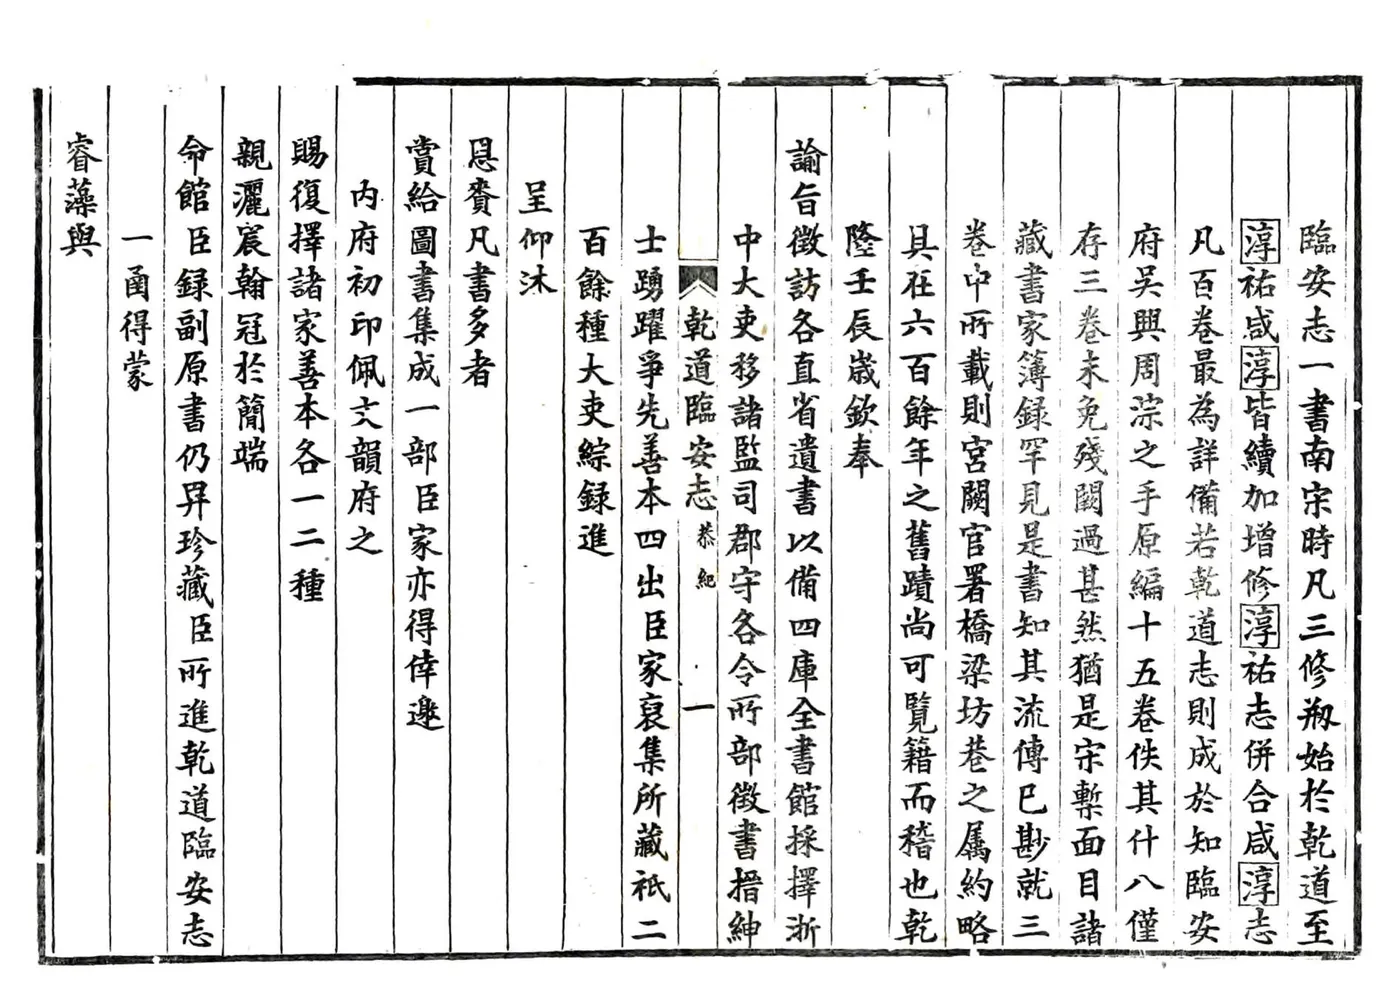 臨安志一書南宋時凡三修刱始於乾道至
淳祐咸淳皆續加增修淳祐志併合咸淳志
凡百卷最為詳備若乾道志則成於知臨安
府吳興周淙之手原編十五卷佚其什八僅
存三卷未免殘闕過甚然猶是宋槧面目諸
藏書家簿録罕見是書知其流傳已尠就三
卷中所載則宮闕官署橋梁坊巷之属約略
具在六百餘年之舊蹟尚可覽籍而稽也乾
隆壬辰嵗欽奉
諭旨徵訪各直省遺書以備四庫全書館採擇浙
中大吏移諸監司郡守各令所部徵書搢紳
乾道臨安志 恭紀 一
士踴躍爭先善本四出臣家裒集所藏祇二
百餘種大吏綜録進
呈仰沐
恩賚凡書多者
賞給圖書集成一部臣家亦得倖邀
内府初印佩文韻府之
賜復擇諸家善本各一二種
親灑宸翰冠於簡端
命館臣録副原書仍畀珍藏臣所進乾道臨安志
一圅得蒙
睿藻與